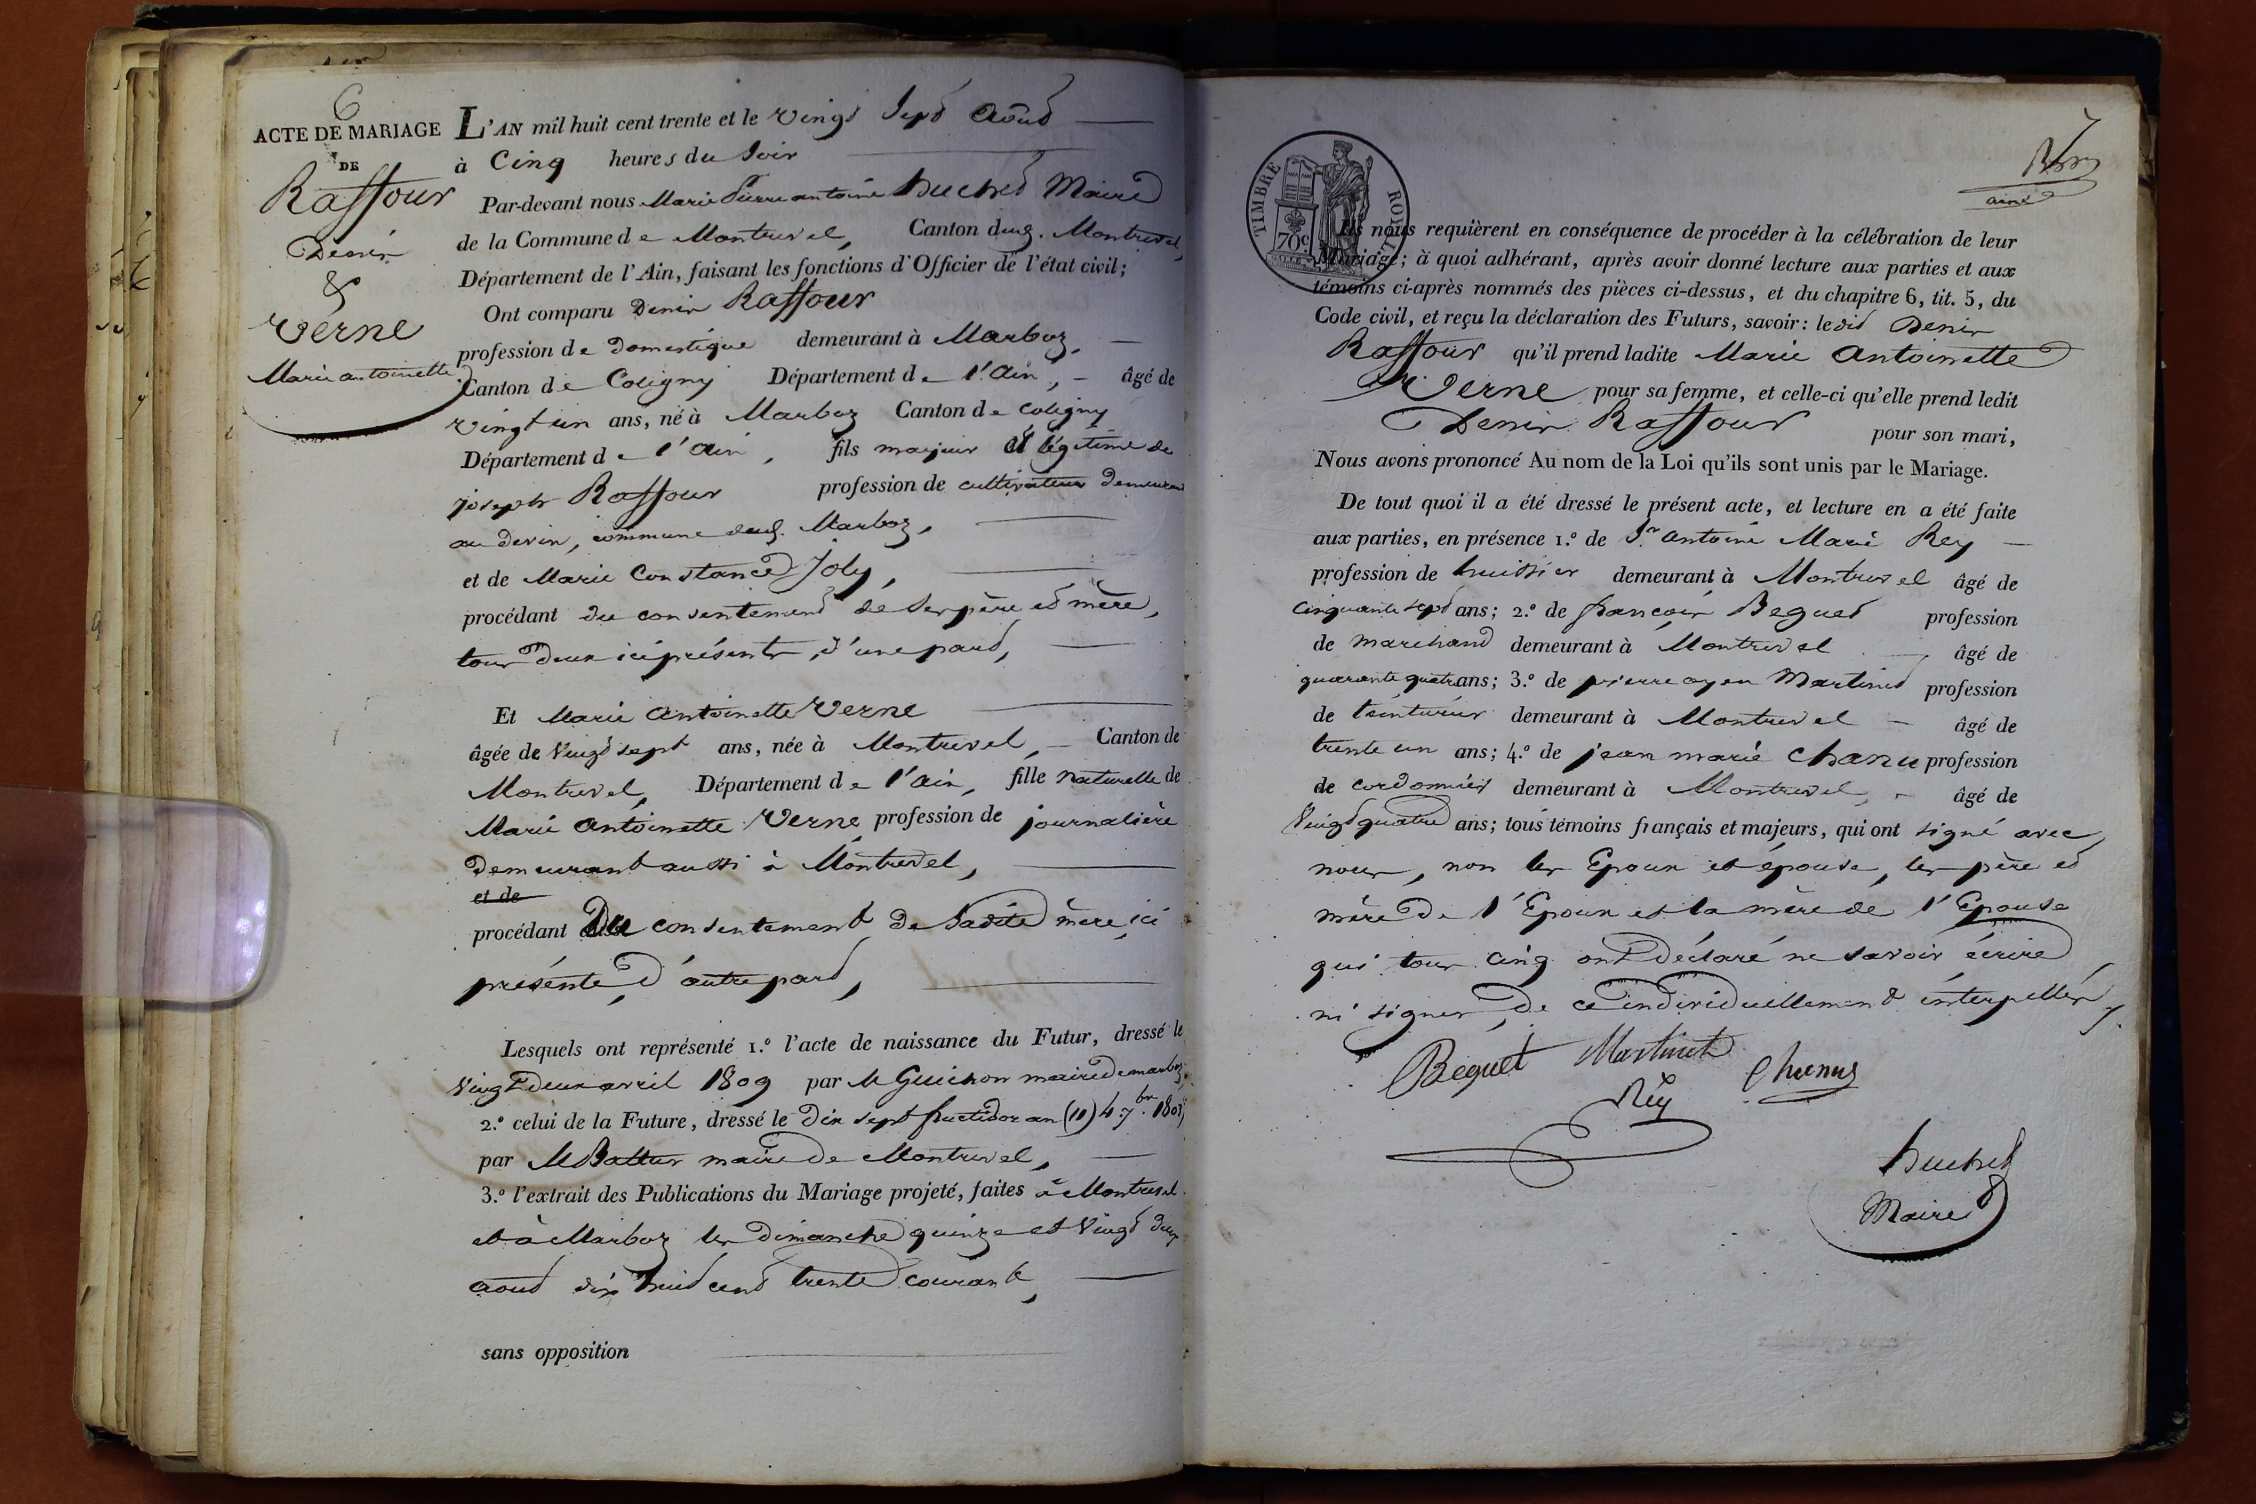 6
ACTE DE MARIAGE
DE
Raffour
Denis
&
Verne
Marie antoinette
L'AN mil huit cent trente et le vingt sept août
à Cinq heures du soir
Par-devant nous Marie Pierre antoine huchet Maire
de la Commune de Montrevel, Canton dud. Montrevel,
Département de l'Ain, faisant les fonctions d'Officier de l'état civil;
Ont comparu Denis Raffour
profession de Domestique demeurant à Marboz,
Canton de Coligny Département de l'ain, âgé de
vingt un ans, né à Marboz Canton de Coligny
Département de l'ain, fils majeur et légitime de
joseph Raffour profession de cultivateur demeurant
au devin, commune dud. Marboz,
et de Marie Constance Joly,
procédant du consentement de ses père et mère,
tous deux ici présents, d'une part,
Et Marie Antoinette Verne
âgée de Vingt sept ans, née à Montrevel, Canton de
Montrevel, Département de l'ain, fille naturelle de
Marie antoinette Verne, profession de journalière
demeurant aussi à Montrevel,
et de
procédant Du consentement de Sadite mère, ici
présente, d'autre part,
Lesquels ont représenté 1.º l'acte de naissance du Futur, dressé le
Vingt deux avril 1809 par M Guichon maire de marboz,
2.º celui de la Future, dressé le dix sept fructidor an (11) 4 7.br 1803,
par M Battur maire de Montrevel,
3.º l'extrait des Publications du Mariage projeté, faites à Montrevel
et à Marboz les dimanche quinze et Vingt deux
aout dix huit cent trente courant,
sans opposition
7
aîné
TIMBRE ROYAL
70c
Ils nous requièrent en conséquence de procéder à la célébration de leur
Mariage; à quoi adhérant, après avoir donné lecture aux parties et aux
témoins ci-après nommés des pièces ci-dessus, et du chapitre 6, tit. 5, du
Code civil, et reçu la déclaration des Futurs, savoir: ledit Denis
Raffour qu'il prend ladite Marie Antoinette
Verne pour sa femme, et celle-ci qu'elle prend ledit
Denis Raffour pour son mari,
Nous avons prononcé Au nom de la Loi qu'ils sont unis par le Mariage.
De tout quoi il a été dressé le présent acte, et lecture en a été faite
aux parties, en présence 1.º de S.r antoine Marie Rey
profession de huissier demeurant à Montrevel âgé de
cinquante sept ans; 2.º de françois Beguet profession
de marchand demeurant à Montrevel âgé de
quarante quatre ans; 3.º de pierre ayen Martinet profession
de teinturier demeurant à Montrevel âgé de
trente un ans; 4.º de jean marie Chanu profession
de cordonnier demeurant à Montrevel, âgé de
Vingt quatre ans; tous témoins français et majeurs, qui ont signé avec
nous, non les Epoux et épouse, les père et
mère de l'Epoux et la mère de l'Epouse
qui tous cinq ont déclaré ne savoir écrire
ni signer, de ce individuellement interpellés
Beguet Martinet Chanus
Rey
huchet
Maire